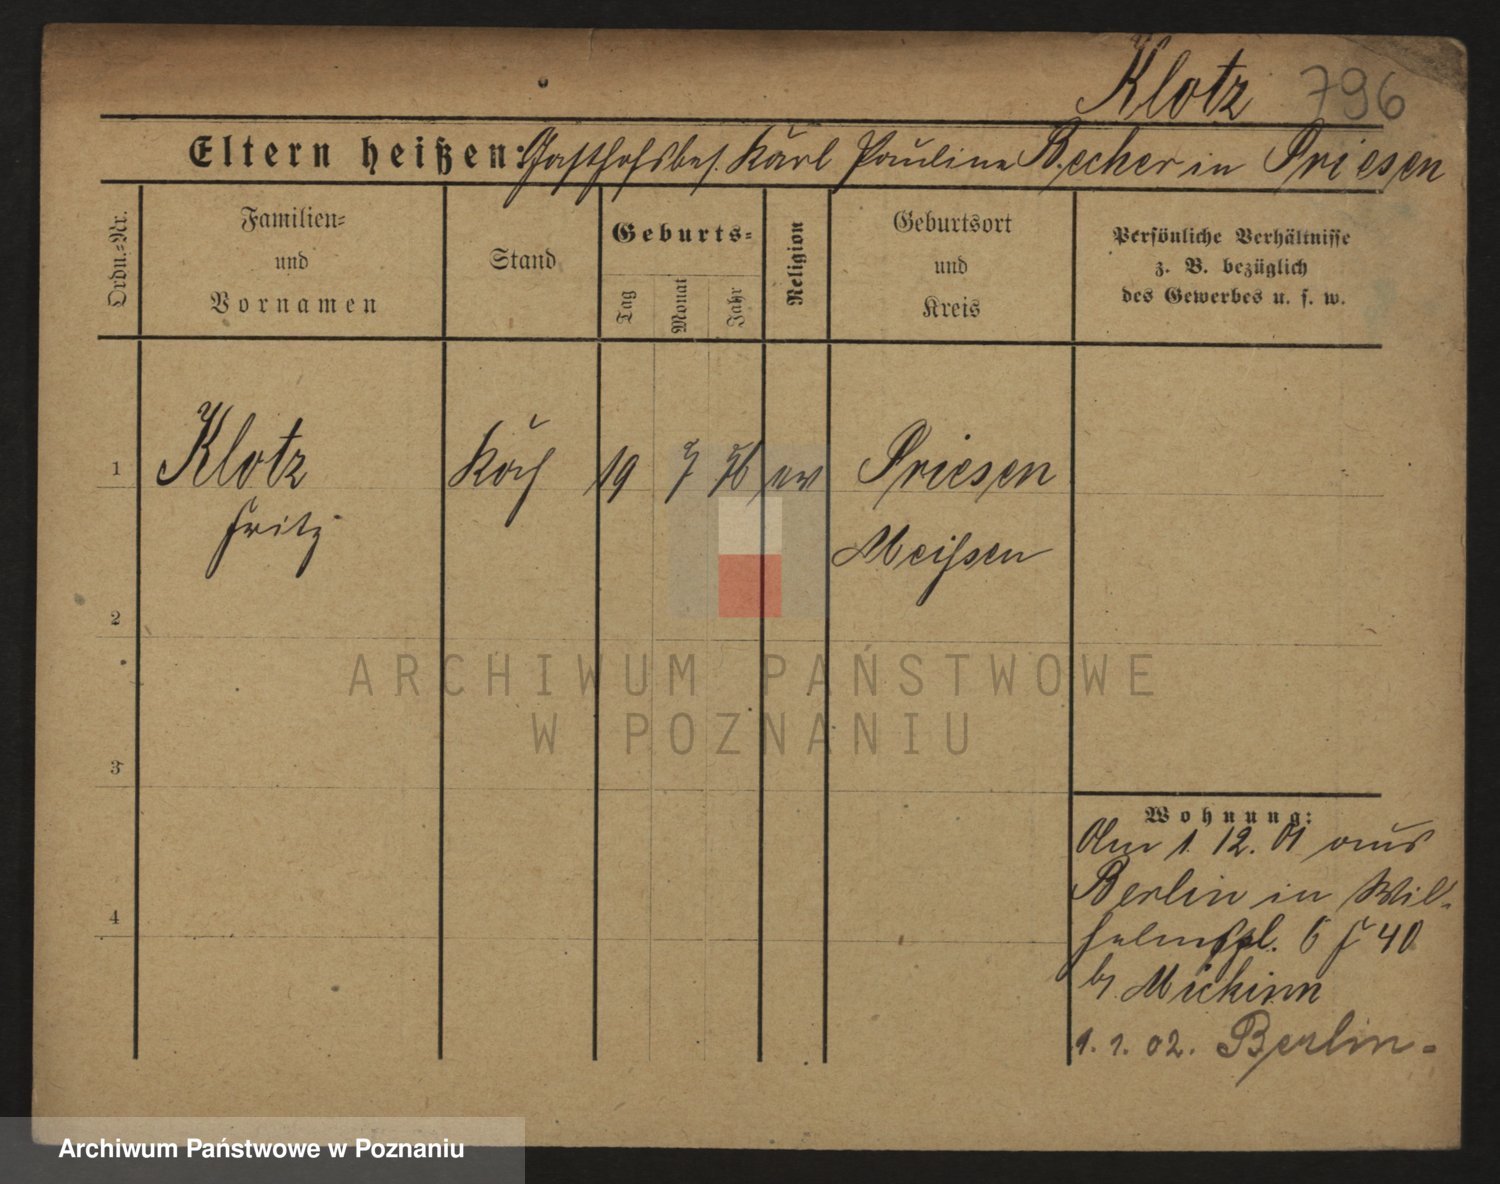 Klotz 796
Eltern heißen: Gasthofsbes. Karl Pauline Becher in Priesen
Ordn.-Nr.
Familien-
und
Vornamen
Stand
Geburts-
Tag
Monat
Jahr
Religion
Geburtsort
und
Kreis
Persönliche Verhältnisse
z. B. bezüglich
des Gewerbes u. s. w.
1 Klotz Koch 19 7 76 ev Priesen
Fritz
Meißen
2
3
4
ARCHIWUM PAŃSTWOWE
W POZNANIU
Wohnung:
Am 1. 12. 01 aus
Berlin in Wil-
helmspl. 6 40
b/
1. 1. 02. Berlin-
Archiwum Państwowe w Poznaniu